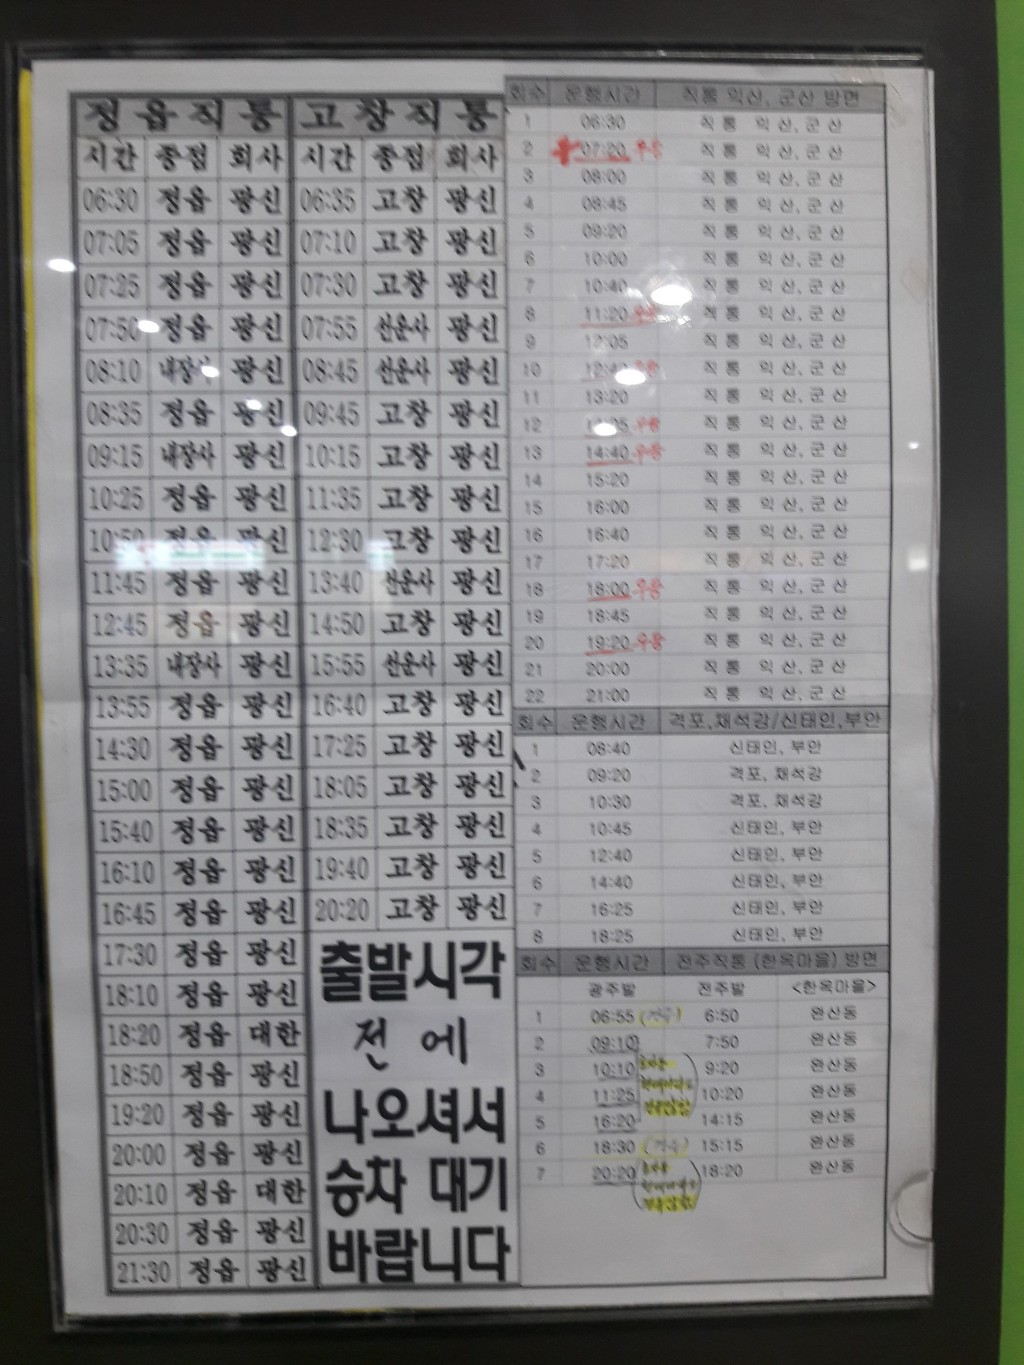 정읍직통
시간 종점 회사
06:30 정읍 광신
07:05 정읍 광신
07:25 정읍 광신
07:50 정읍 광신
08:10 내장사 광신
08:35 정읍 광신
09:15 내장사 광신
10:25 정읍 광신
10:50 정읍 광신
11:45 정읍 광신
12:45 정읍 광신
13:35 내장사 광신
13:55 정읍 광신
14:30 정읍 광신
15:00 정읍 광신
15:40 정읍 광신
16:10 정읍 광신
16:45 정읍 광신
17:30 정읍 광신
18:10 정읍 광신
18:20 정읍 대한
18:50 정읍 광신
19:20 정읍 광신
20:00 정읍 광신
20:10 정읍 대한
20:30 정읍 광신
21:30 정읍 광신
고창직통
시간 종점 회사
06:35 고창 광신
07:10 고창 광신
07:30 고창 광신
07:55 선운사 광신
08:45 선운사 광신
09:45 고창 광신
10:15 고창 광신
11:35 고창 광신
12:30 고창 광신
13:40 선운사 광신
14:50 고창 광신
15:55 선운사 광신
16:40 고창 광신
17:25 고창 광신
18:05 고창 광신
18:35 고창 광신
19:40 고창 광신
20:20 고창 광신
출발시각
전에
나오셔서
승차 대기
바랍니다
회수 운행시간 직통 익산, 군산 방면
1 06:30 직통 익산, 군산
2 07:20 우등 직통 익산, 군산
3 08:00 직통 익산, 군산
4 08:45 직통 익산, 군산
5 09:20 직통 익산, 군산
6 10:00 직통 익산, 군산
7 10:40 직통 익산, 군산
8 11:20 우등 직통 익산, 군산
9 12:05 직통 익산, 군산
10 12:40 우등 직통 익산, 군산
11 13:20 직통 익산, 군산
12 우등 직통 익산, 군산
13 14:40 우등 직통 익산, 군산
14 15:20 직통 익산, 군산
15 16:00 직통 익산, 군산
16 16:40 직통 익산, 군산
17 17:20 직통 익산, 군산
18 18:00 우등 직통 익산, 군산
19 18:45 직통 익산, 군산
20 19:20 우등 직통 익산, 군산
21 20:00 직통 익산, 군산
22 21:00 직통 익산, 군산
회수 운행시간 격포,채석강/신태인,부안
1 08:40 신태인, 부안
2 09:20 격포, 채석강
3 10:30 격포, 채석강
4 10:45 신태인, 부안
5 12:40 신태인, 부안
6 14:40 신태인, 부안
7 16:25 신태인, 부안
8 18:25 신태인, 부안
회수 운행시간 전주직통 (한옥마을) 방면
광주발 전주발 <한옥마을>
1 06:55 6:50 완산동
2 09:10 7:50 완산동
3 10:10 9:20 완산동
4 11:25 10:20 완산동
5 16:20 14:15 완산동
6 18:30 15:15 완산동
7 20:20 18:20 완산동